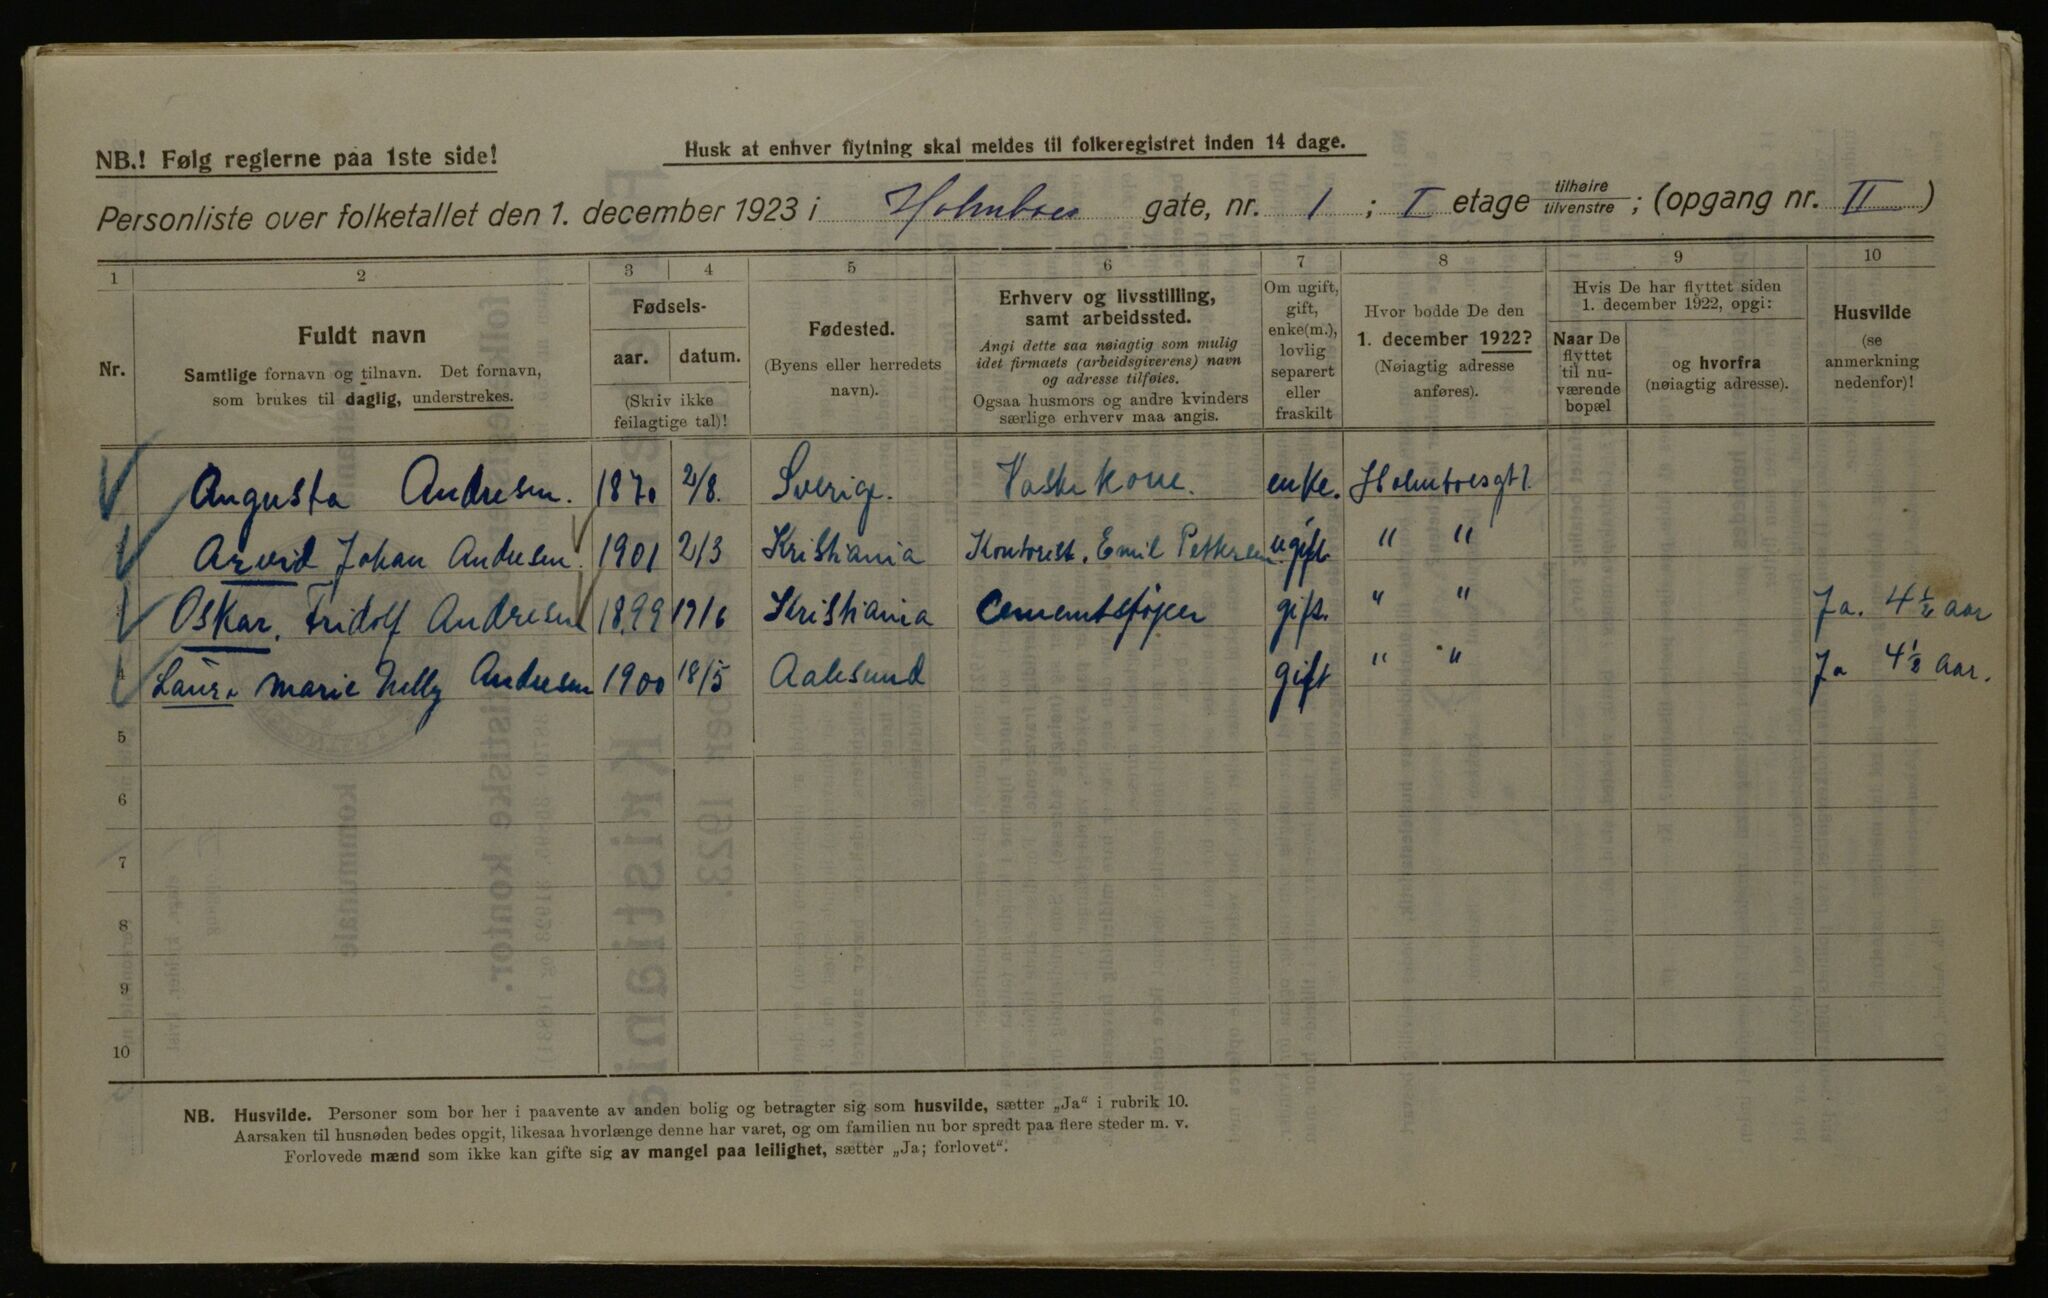 NB.! Følg reglerne paa 1ste side!
Husk at enhver flytning skal meldes til folkeregistret inden 14 dage.
Personliste over folketallet den 1. december 1923 i Holmboes gate, nr. 1 ; I etage tilhøire/tilvenstre ; (opgang nr. II )
1 2 3 4 5 6 7 8 9 10
Nr.
Fuldt navn
Samtlige fornavn og tilnavn. Det fornavn,
som brukes til daglig, understrekes.
Fødsels-
aar. datum.
(Skriv ikke
feilagtige tal)!
Fødested.
(Byens eller herredets
navn).
Erhverv og livsstilling,
samt arbeidssted.
Angi dette saa nøiagtig som mulig
idet firmaets (arbeidsgiverens) navn
og adresse tilføies.
Ogsaa husmors og andre kvinders
særlige erhverv maa angis.
Om ugift,
gift,
enke(m.),
lovlig
separert
eller
fraskilt
Hvor bodde De den
1. december 1922?
(Nøiagtig adresse
anføres).
Hvis De har flyttet siden
1. december 1922, opgi:
Naar De
flyttet
til nu-
værende
bopæl
og hvorfra
(nøiagtig adresse).
Husvilde
(se
anmerkning
nedenfor)!
Augusta Andresen. 1870 2/8. Sverige. Vaskekone. enke. Holmboesgt 1.
Arvid Johan Andresen. 1901 2/3 Kristiania Kontorist. Emil Pettersen ugift. " "
Oskar. Fridolf Andresen 1899 17/6 Kristiania Cementstøper gift. " " Ja. 4 1/2 aar
4 Laura Marie Nelly Andresen 1900 18/5 Aalesund gift " " Ja 4 1/2 aar.
5
6
7
8
9
10
NB. Husvilde. Personer som bor her i paavente av anden bolig og betragter sig som husvilde, sætter „Ja“ i rubrik 10.
Aarsaken til husnøden bedes opgit, likesaa hvorlænge denne har varet, og om familien nu bor spredt paa flere steder m. v.
Forlovede mænd som ikke kan gifte sig av mangel paa leilighet, sætter „Ja; forlovet“.